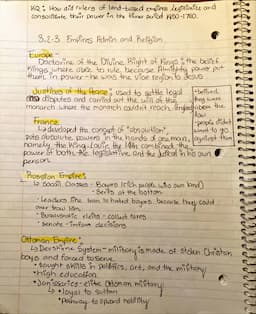 KQ: How did rulers of land-based empires legitimize and
consolidate their power in the time period 1450-1750.
3.2-3 Empires Admin and Religion
Europe -
Doctorine of the Divine Right of Kings: the belief
Kings where able to rule, because
power put
them in power - he was the
to Jesus
Justices of the Peace: used to settle legal
disputes and carried out the will of the
monarch where the monarch couldn't reach.
believed
they were
above the
law
people didn't
want to go
against them
France
↳ developed the concept of "absolutism"
puts absolute powers in the hands of one man,
namely, the King. Louis the 14th combined the
power of both the legislative and the judical in his own
person.
Russian Empire:
↳ Social Classes - Boyars (rich people who own land)
- Serfs at the bottom
- Leaders like Ivan IV hated boyars because they could
over throw him
• Bureaucratic elites - collect taxes
• Senate - inform decisions
Ottoman Empire:
↳ Devshirme System - military is made of stolen Christian
boys and forced to serve.
• taught skills in politics, art, and the military
• high education
• Janissaries - elite Ottoman military
↳ • loyal to sultan
• Pathway to upward mobility